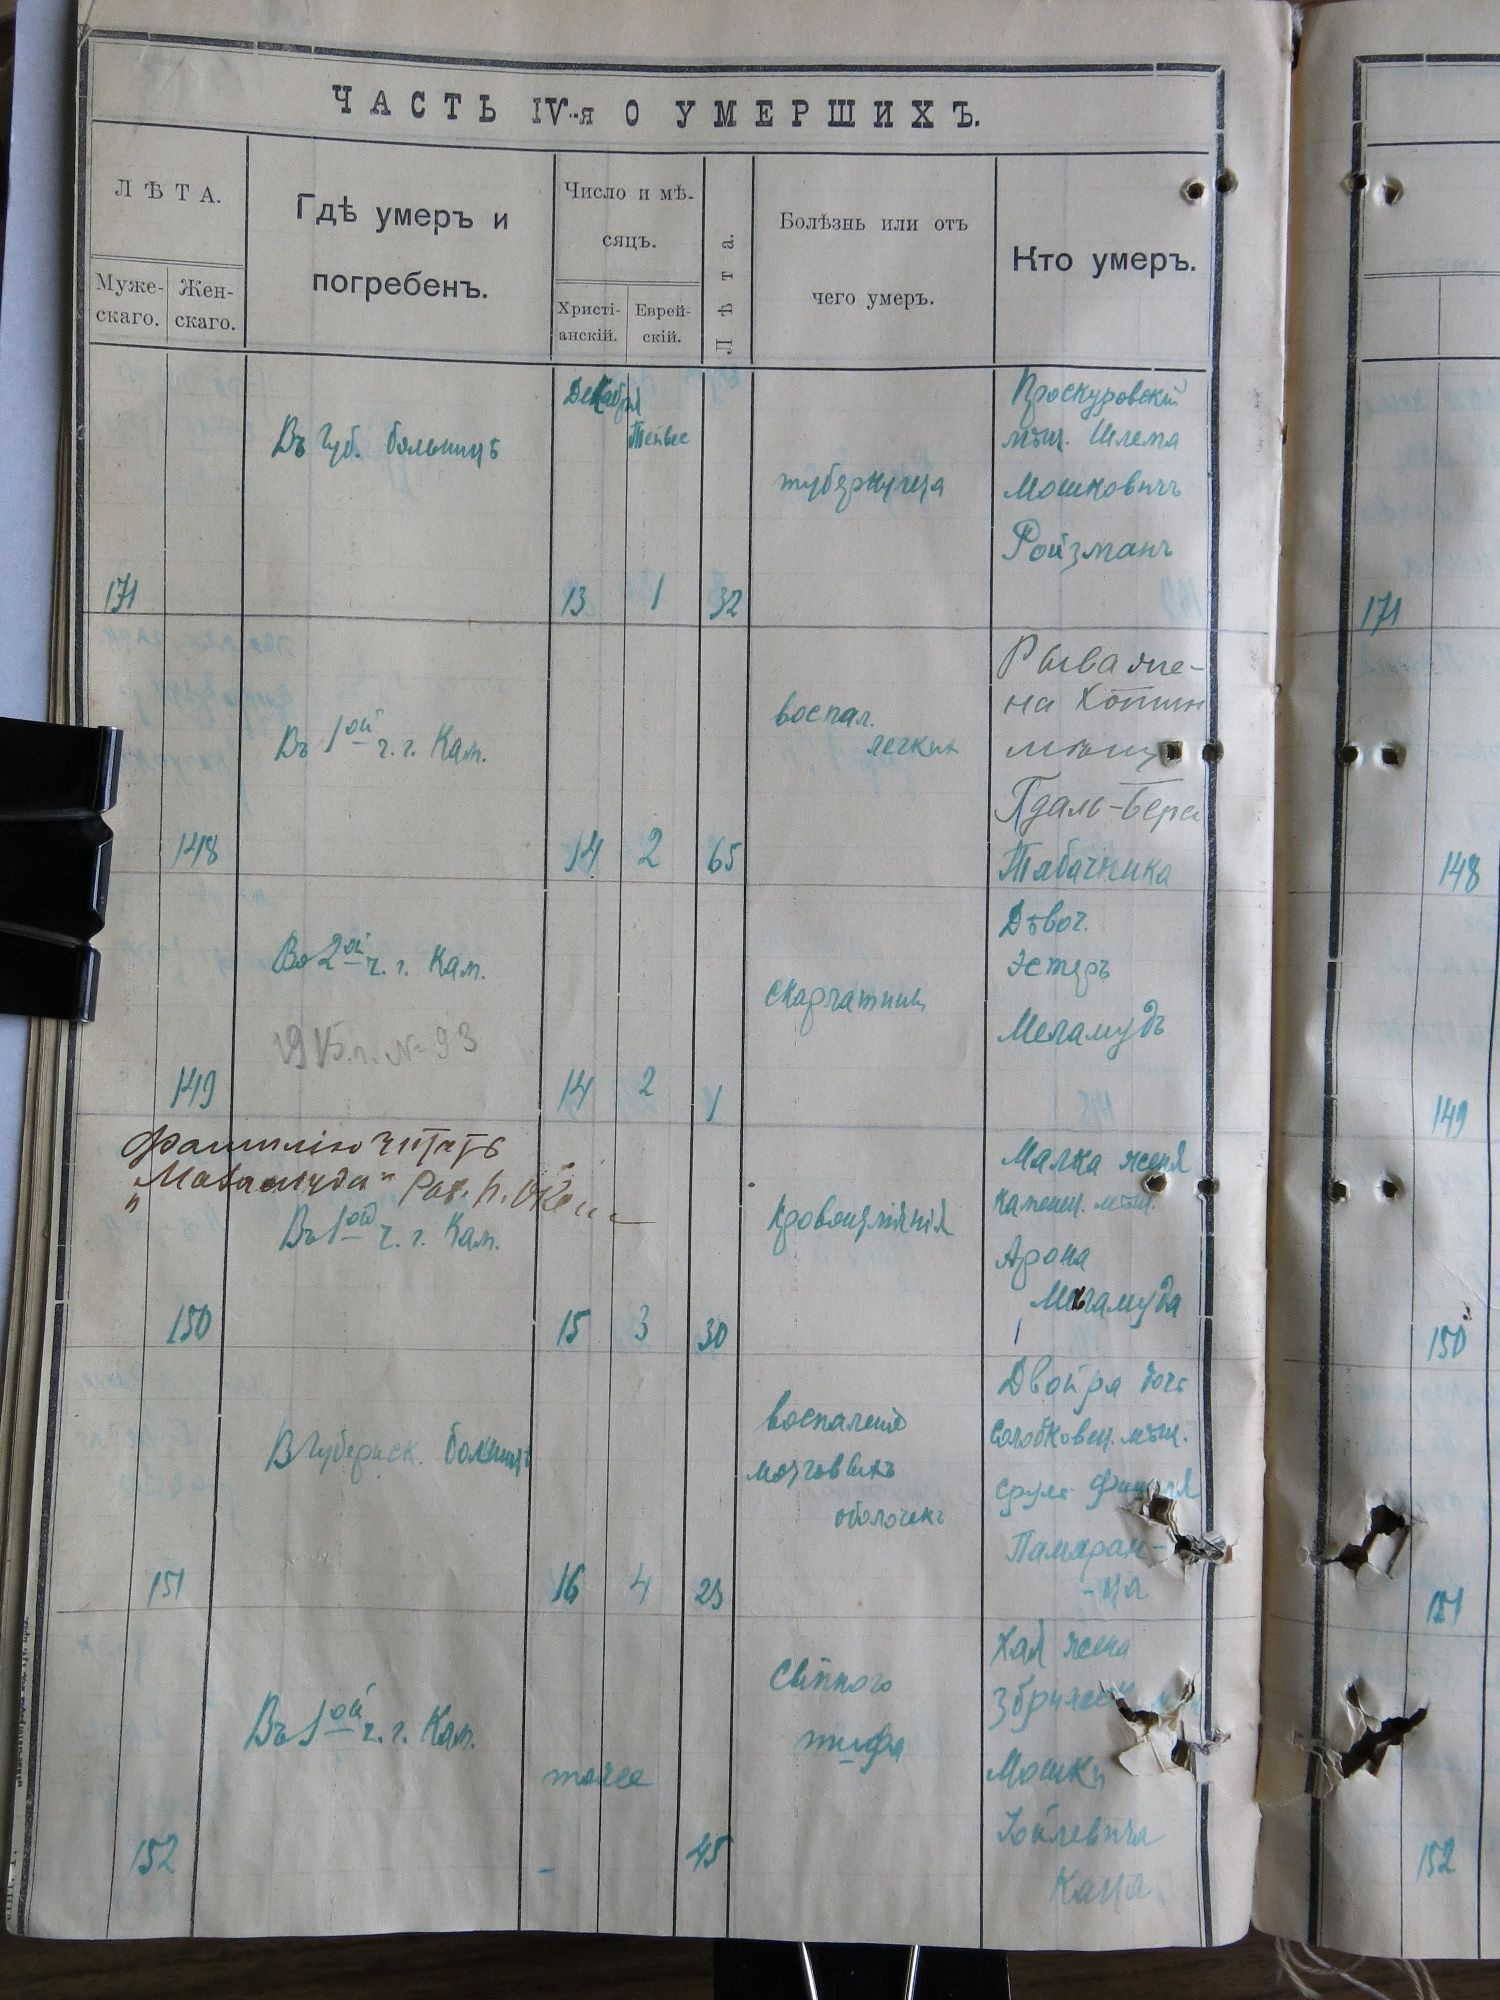 ЧАСТЬ IV-я О УМЕРШИХЪ.
ЛѢТА.
Муже-
скаго.
Жен-
скаго.
Гдѣ умеръ и
погребенъ.
Число и мѣ-
сяцъ.
Христі-
анскій.
Еврей-
скій.
Лѣта.
Болѣзнь или отъ
чего умеръ.
Кто умеръ.
171
Въ Губ. больницѣ
Декабря
Тейвес
13
1
32
туберкулеза
Проскуровскій
мѣщ. Шлема
Мошковичъ
Ройзманъ
171
148
Въ 1ой ч. г. Кам.
14
2
65
воспал.
легких
Рыва же-
на Хотин
мѣщ
Гдаль-Бера
Табачника
148
149
Во 2ой ч. г. Кам.
1915 г. № 93
14
2
1
скарлатины
Дѣвоч.
Эстеръ
Меламудъ
149
Фамилію читать
"Маламуда" Рав.
150
Въ 1ой ч. г. Кам.
15
3
30
кровоизліянія
Малка жена
каменец. мѣщ.
Арона
Маламуда
150
151
В Губернск. больницѣ
16
4
23
воспаленія
мозговыхъ
оболочекъ
Двойра дочь
солобковец. мѣщ.
Сруль
Памаран-
-ца
151
152
Въ 1ой ч. г. Кам.
тоже
-
45
Сыпного
тифа
Хая жена
Мошки
Іойлевича
Каца
152